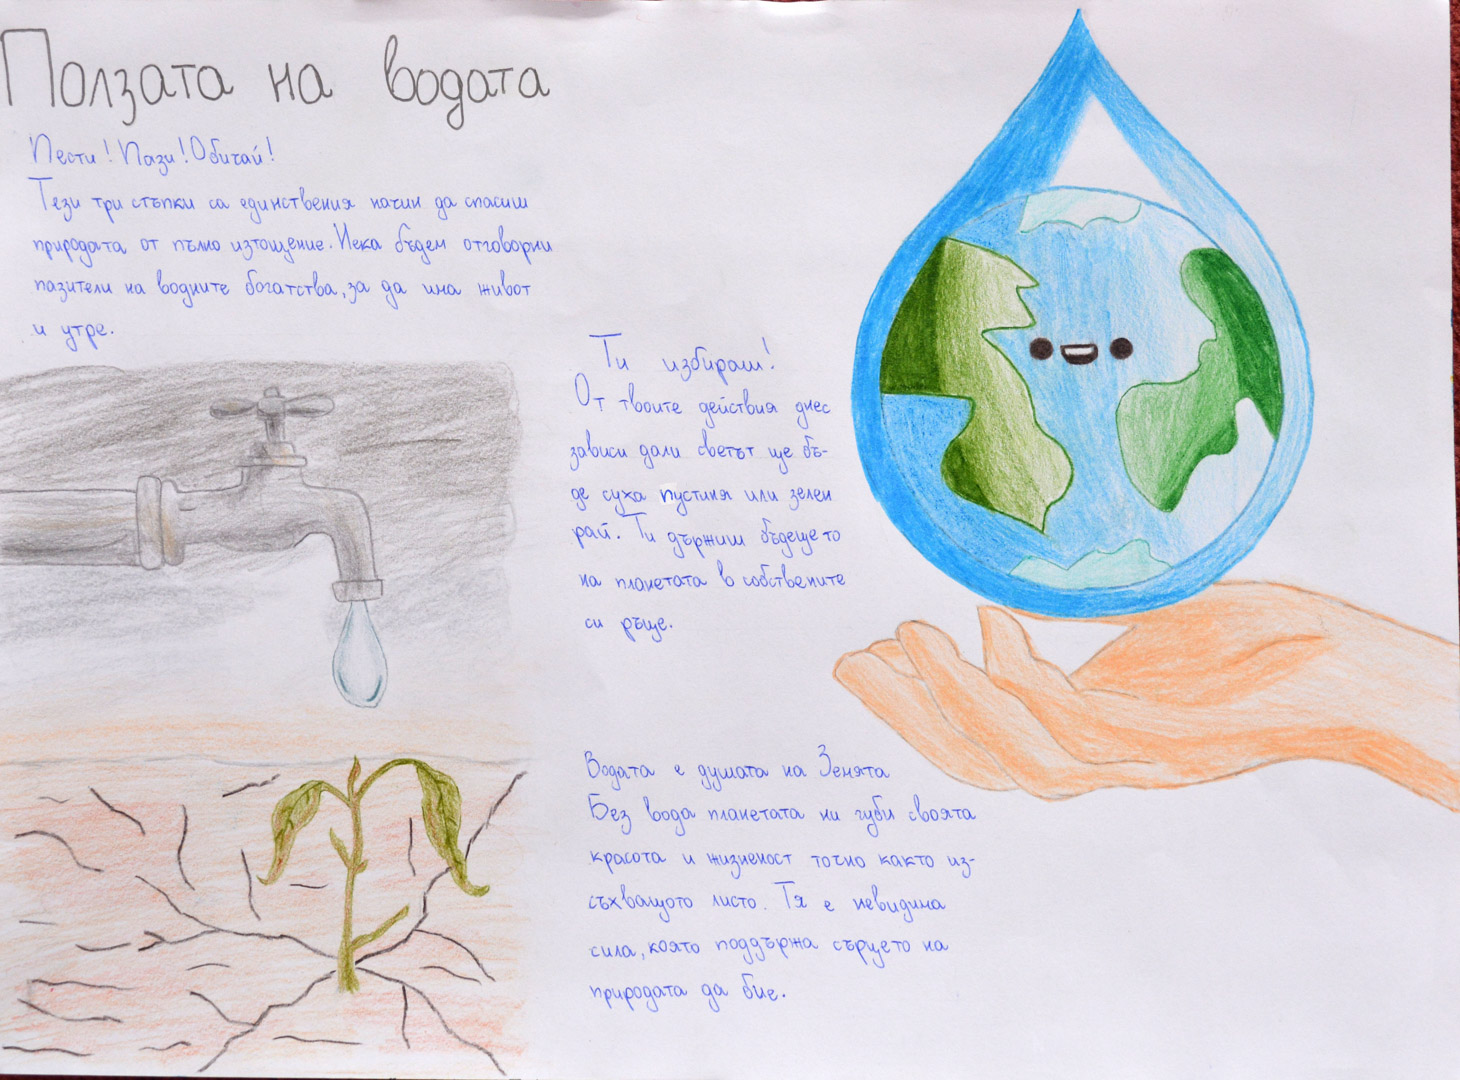 Ползата на водата
Пести! Пази! Обичай!
Тези три стъпки са единствения начин да спасиш
природата от пълно изтощение. Нека бъдем отговорни
пазители на водните богатства, за да има живот
и утре.
Ти избираш!
От твоите действия днес
зависи дали светът ще бъ-
де суха пустиня или зелен
рай. Ти държиш бъдещето
на планетата в собствените
си ръце.
Водата е душата на Земята
Без вода планетата ни губи своята
красота и жизненост точно както из-
съхващото листо. Тя е невидима
сила, която поддържа сърцето на
природата да бие.